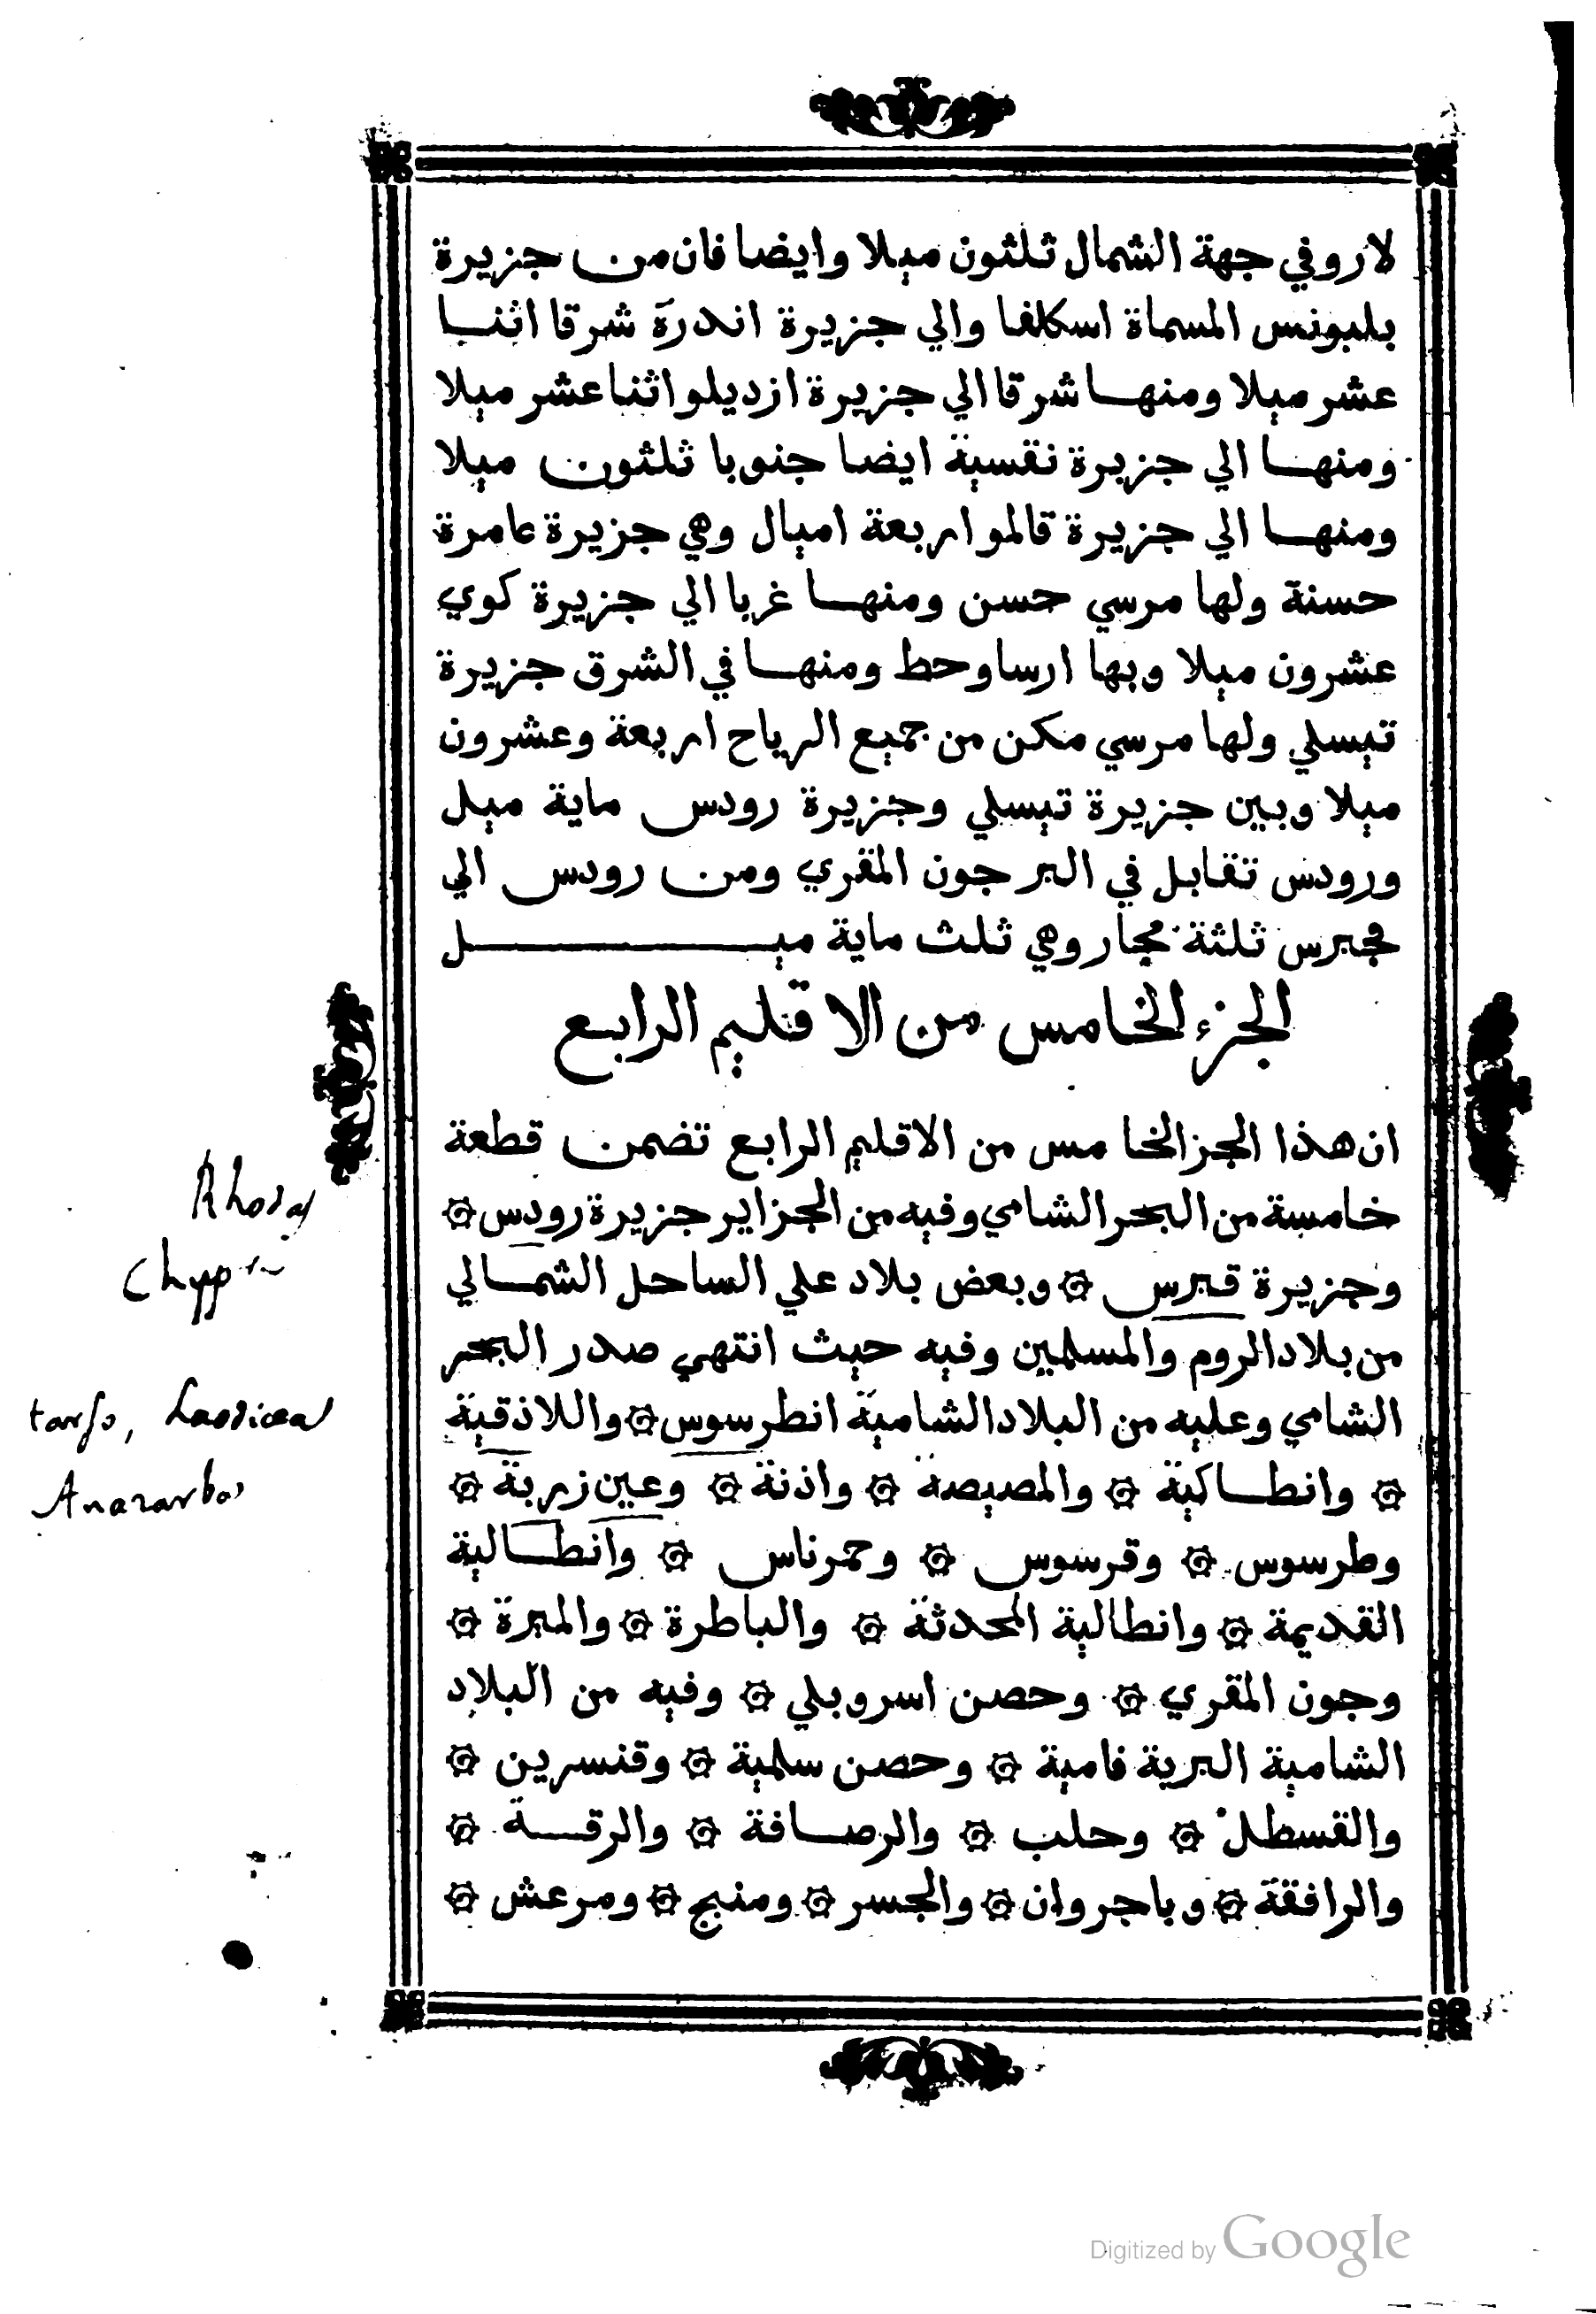 لارو في جهة الشمال ثلثون ميلا وايضا فان من جزيرة
بلبونس المسماة اسكلفا والي جزيرة اندرة شرقا اثنا
عشر ميلا ومنها شرقا الي جزيرة ازديلو اثنا عشر ميلا
ومنها الي جزيرة نقسية ايضا جنوبا ثلثون ميلا
ومنها الي جزيرة قالمو اربعة اميال وهي جزيرة عامرة
حسنة ولها مرسي حسن ومنها غربا الي جزيرة كوي
عشرون ميلا وبها ارسا وحط ومنها في الشرق جزيرة
تيسلي ولها مرسي مكن من جميع الرياح اربعة وعشرون
ميلا وبين جزيرة تيسلي وجزيرة رودس ماية ميل
ورودس تقابل في البر جون المقري ومن رودس الي
قبرس ثلثة مجار وهي ثلث ماية ميل
الجزء الخامس من الاقليم الرابع
ان هذا الجز الخامس من الاقليم الرابع تضمن قطعة
خامسة من البحر الشامي وفيه من الجزاير جزيرة رودس ۞
وجزيرة قبرس ۞ وبعض بلاد علي الساحل الشمالي
من بلاد الروم والمسلمين وفيه حيث انتهي صدر البحر
الشامي وعليه من البلاد الشامية انطرسوس ۞ واللاذقية
۞ وانطاكية ۞ والمصيصة ۞ واذنة ۞ وعين زربة ۞
وطرسوس ۞ وقرسوس ۞ وحمرناس ۞ وانطالية
القديمة ۞ وانطالية المحدثة ۞ والباطرة ۞ والمبرة ۞
وجون المقري ۞ وحصن اسروبلي ۞ وفيه من البلاد
الشامية البرية فامية ۞ وحصن سلمية ۞ وقنسرين ۞
والقسطل ۞ وحلب ۞ والرصافة ۞ والرقة ۞
والرافقة ۞ وباجروان ۞ والجسر ۞ ومنبج ۞ ومرعش ۞
Rhodas
Chypre
tarso, Laodicea
Anazarbos
Digitized by Google